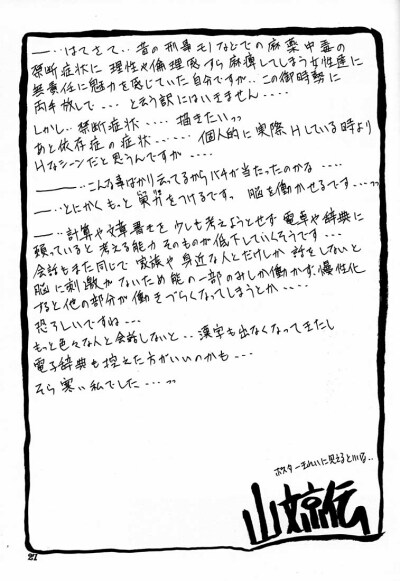 ―‥‥はてさて‥昔の刑事モノなどでの麻薬中毒の
禁断症状に 理性や倫理感すら麻痺してしまう女性達に
無責任に魅力を感じていた自分ですが‥この御時勢に
両手放しで‥‥ とう訳にはいきません‥‥
しかし‥禁断症状‥‥ 描きたいッ
あと依存症の症状‥‥‥ 個人的に実際Hしている時より
Hなシーンだと思うんですが‥‥
―――‥こんな事ばかり云ってるからバチが当たったのかな‥‥
―‥とにかくもっと 脳を働かせるです‥‥ッ
―‥‥計算や文章書きを 少しも考えようとせず 電卓や辞典に
頼っていると 考える能力そのものが低下していくそうです‥‥
会話もまた同じで 家族や身近な人とだけしか 話をしないと
脳に刺激がないため能の一部のみしか働かず 慢性化
すると他の部分が働きづらくなってしまうとか‥‥
恐ろしいですね‥‥
もっと色々な人と会話しないと‥漢字も出なくなってきたし
電子辞典も控えた方がいいのかも‥‥
そら寒い私でした‥‥ッ
ポスターきれいに見えるといいな‥
山文京伝
27